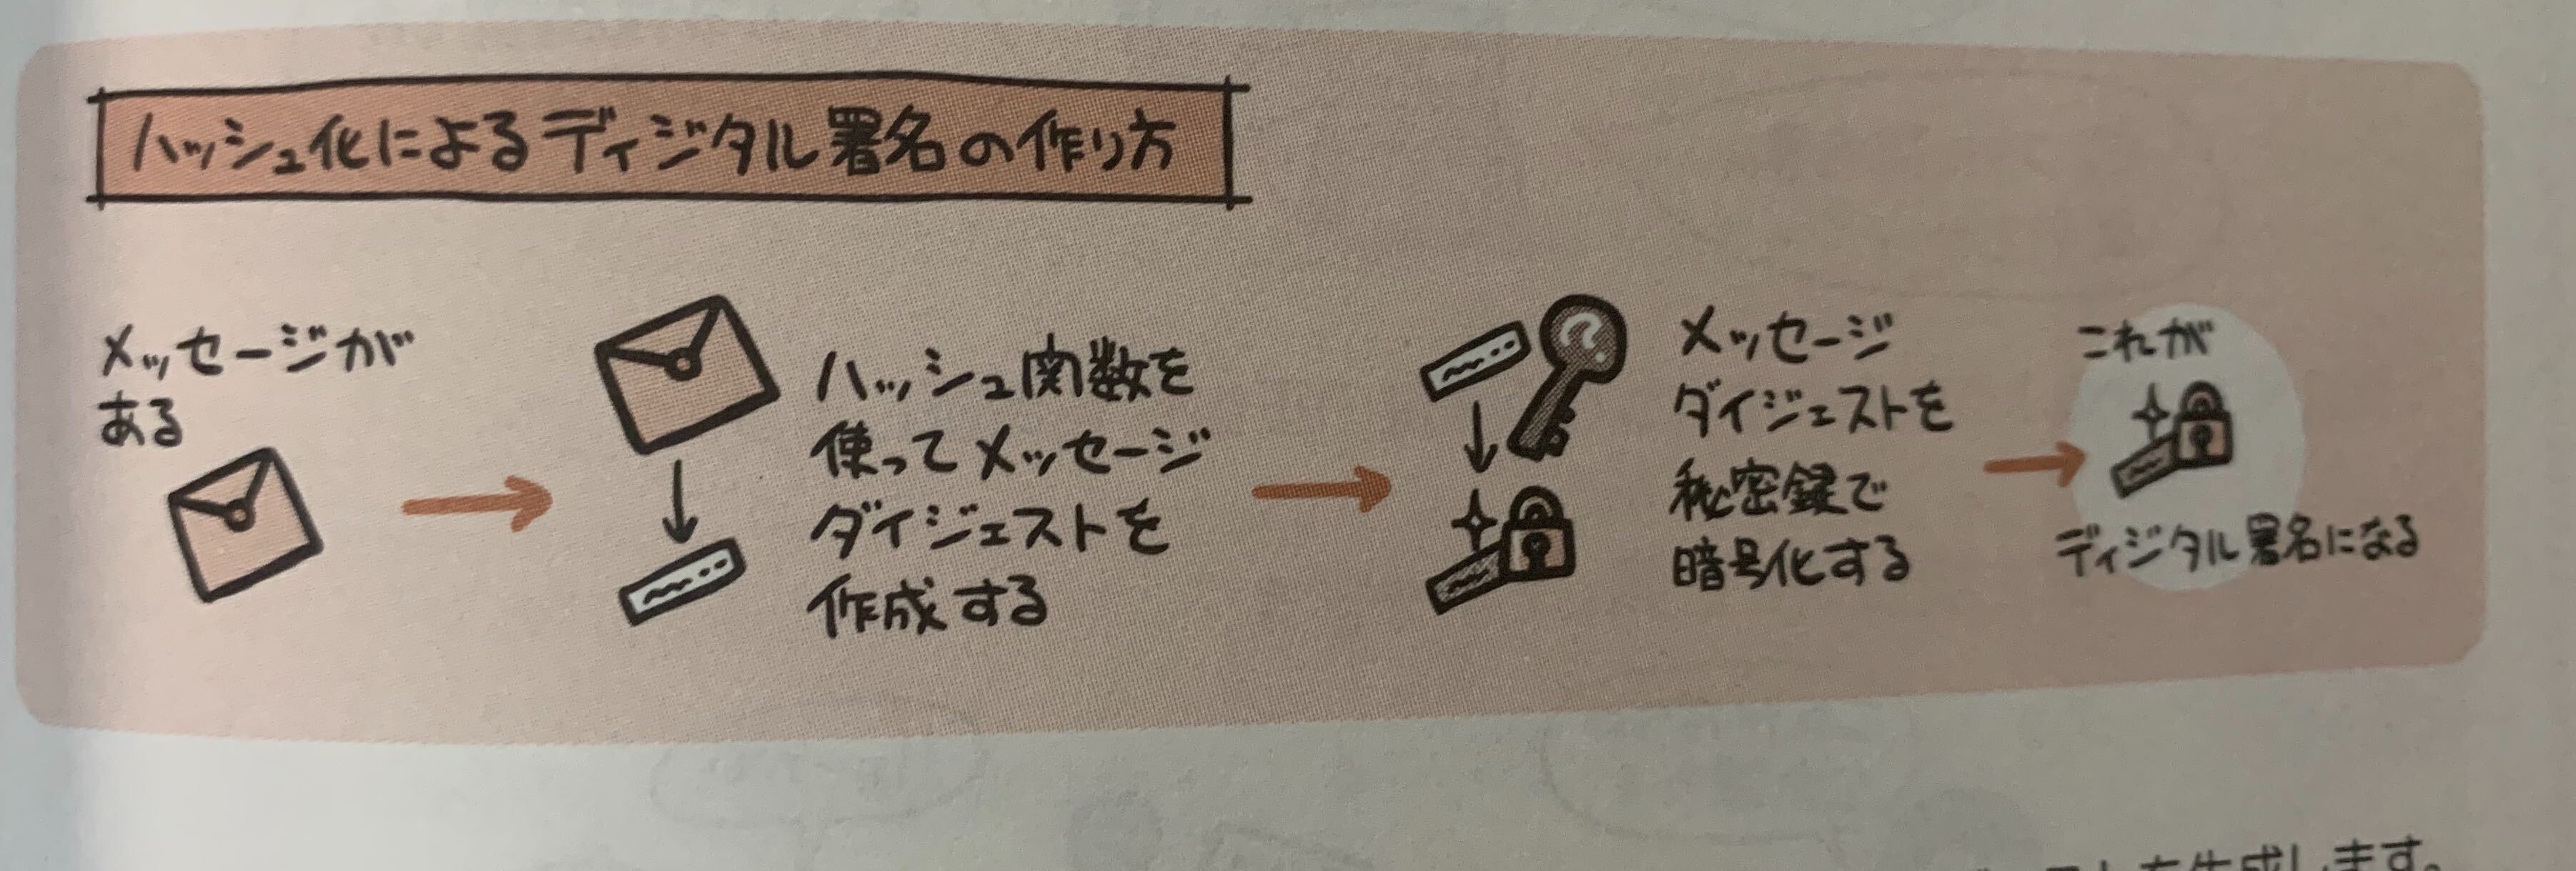 ハッシュ化によるディジタル署名の作り方
メッセージが
ある
ハッシュ関数を
使ってメッセージ
ダイジェストを
作成する
メッセージ
ダイジェストを
秘密鍵で
暗号化する
これが
ディジタル署名になる
を生成します。